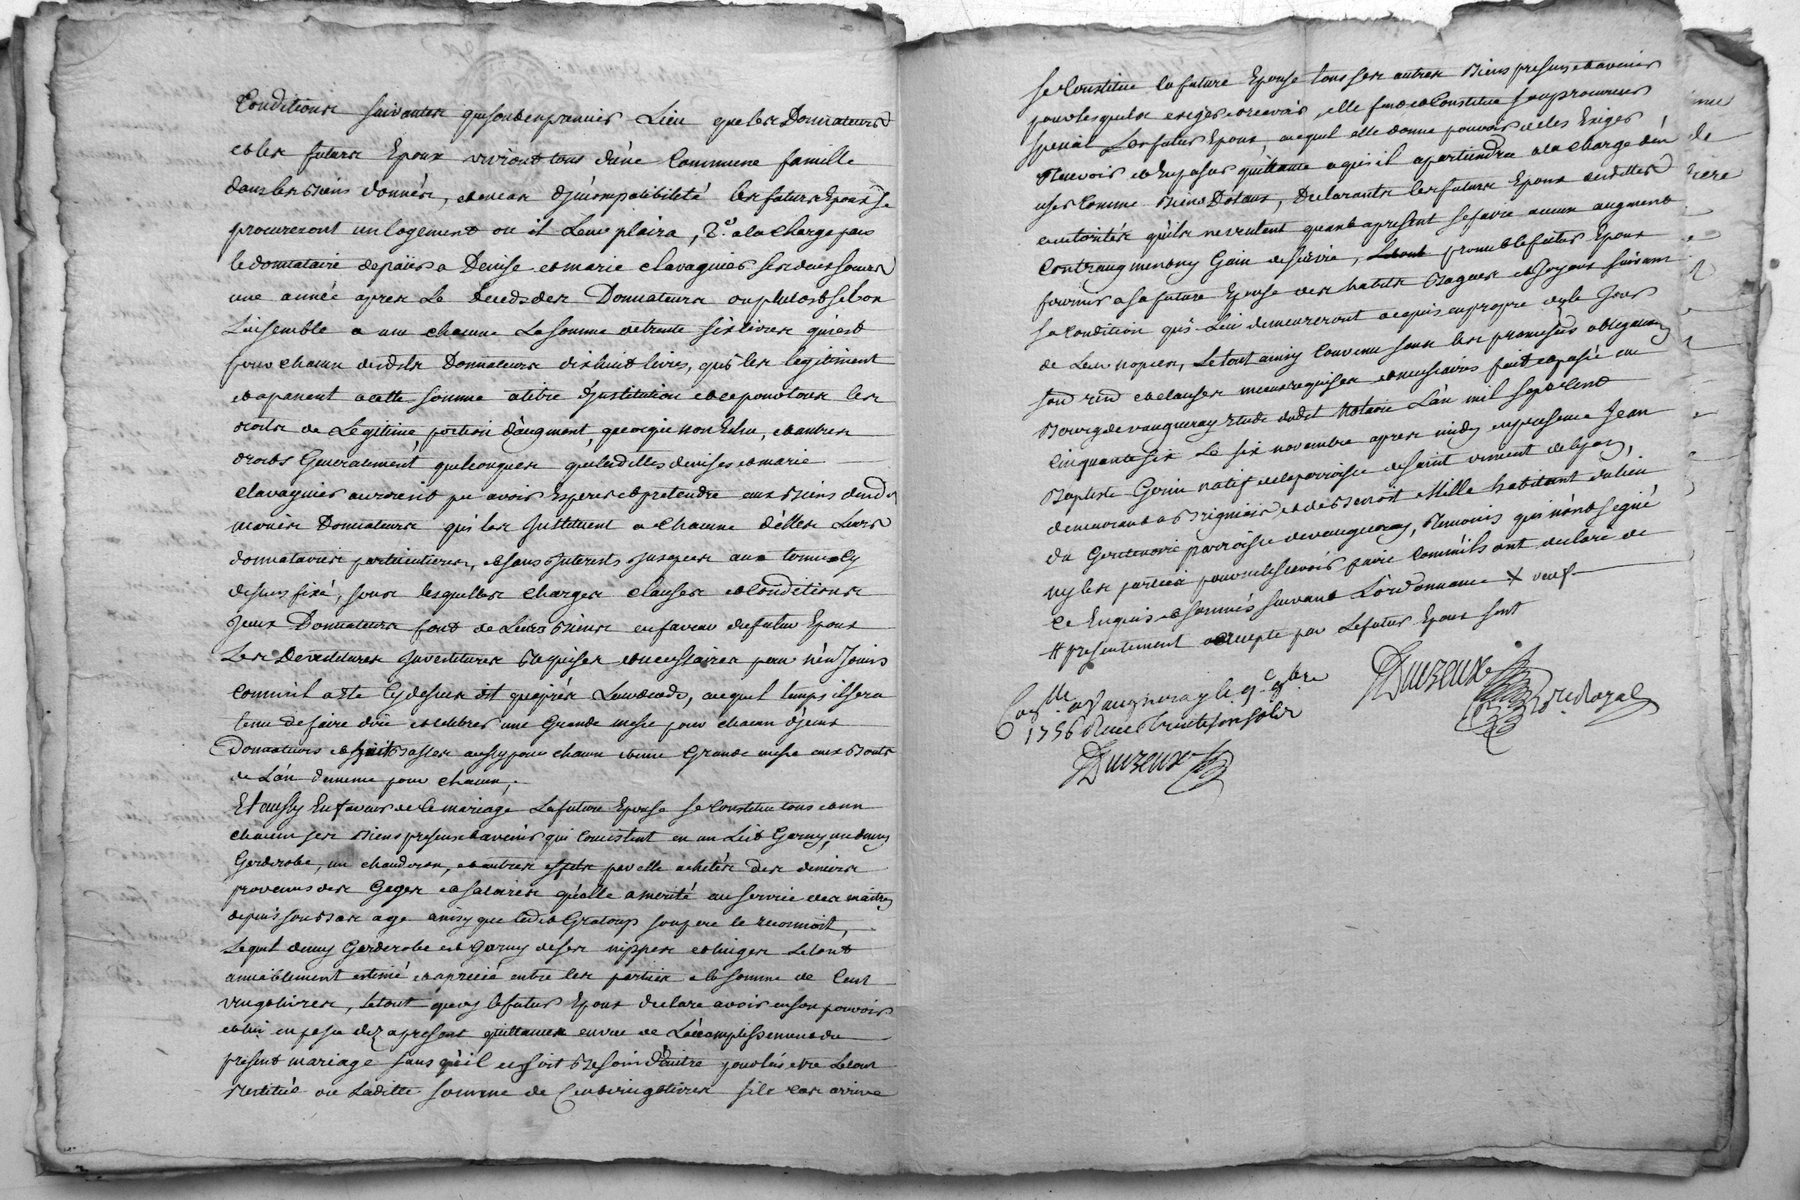 Conditions suivantes qui sont en premier Lieu que les Donnateurs
et les futurs Epoux vivront tous d'une Commune famille
dans les Biens donnés, et en cas d'jncompatibilité les futurs Epoux se
procureront un logement ou il Leur plaira, 2.° a la charge par
le donnataire de paÿer a Denise et marie clavaguier ses deux soeurs
une année apres le Deceds des Donnateurs ou plutost selon
L'ensemble a une chacune La somme de trente six livres qui est
pour chacun desdits Donnateurs dix huit livres, qu'ils les legitiment
et apanent a cette somme a titre d'jnstitution et ce pour tous les
droits de Legitime, portion d'augment, quoique non Echu, et autres
droits Generalement quelconques que lesdittes denise et marie
clavaguier auroient pu avoir Esperer et pretendre aux Biens desd.
mariés Donnateurs qui les jnstituent a chacune d'elles Leurs
donnataires particulieres, et sans jnterests jusques aux termes cy
dessus fixé, sous lesquelles charges clauses et Conditions
jceux Donnateurs font de Leurs Biens en faveur du futur Epoux
Les Devestitures jnvestitures Requises et necessaires pour n'en Jouir
comm'il a été Cy dessus dit qu'après Leur deceds, auquel temps il sera
tenu de faire dire et celebrer une Grande messe pour chacun d'jceux
Donnateurs et fait Basser aussy pour chacun et une Grande messe aux Bouts
de L'an d'emme pour chacun,
Et aussy En faveur de Ce mariage La future Epouse se Constitue tous et un
chacun ses Biens presents et avenirs qui Consistent en un Lit Garny, un demy
Garderobe, un chauderon, et autres effets par elle achetés des deniers
provenus des Gages et salaires qu'elle a merité au service des maitres
depuis son bas age ainsy que ledit Gratoup son pere le reconnoit,
Lequel demy Garderobe est Garny de ses nippes et linges Le tout
amiablement estimé et apprecié entre les parties a la somme de Cent
vingt livres, le tout que le futur Epoux declare avoir en son pouvoir
et lui en passe dez apresent quittance en vue de L'accomplissement du
present mariage sans qu'il en soit Besoin d'autre pour luÿ etre Le tout
Restitué ou Laditte somme de Cent vingt livres si le cas arrive
se Constitue la future Epouse tous ses autres Biens presents et avenirs
pour lesquels exiger et recevoir elle fait et Constitue son procureur
special Led futur Epoux, auquel elle donne pouvoir de les Exiger
Recevoir et En passer quittance a qui il apartiendra a la charge d'en
user Comme Biens Dotaux, Declarants les futurs Epoux desdittes
autorités qu'ils ne veulent quand apresent se faire aucun augment
contraugment ny Gain de survie, promet le futur Epoux
fournir a sa future Epouse des habits Bagues et Joyaux suivant
sa condition qui Lui demeureront acquis en propre dez le Jour
de Leur nopces, Le tout ainsy Convenu sous les promesses obligations
fait et passé au
Bourg de vaugneray Etude dudit Notaire L'an mil sept Cent
Cinquante six Le six novembre apres midy en presence Jean
Baptiste Gorin natif de la parroisse de saint vincent de lyon,
demeurant a Brignais et de Benoit Mille habitant du lieu
parroisse de vaugneray, Temoins qui n'ont signé
ny les parties pour ne le sçavoir faire Comm'ils ont declaré de
Ce Enquis et sommés suivant L'ordonnance X veuf
# presentement accepte par Le futur Epoux sont
Duzeux
Con.lle a Vaugneray le 9.e 9bre
1756 Reçu trente
Duzeux